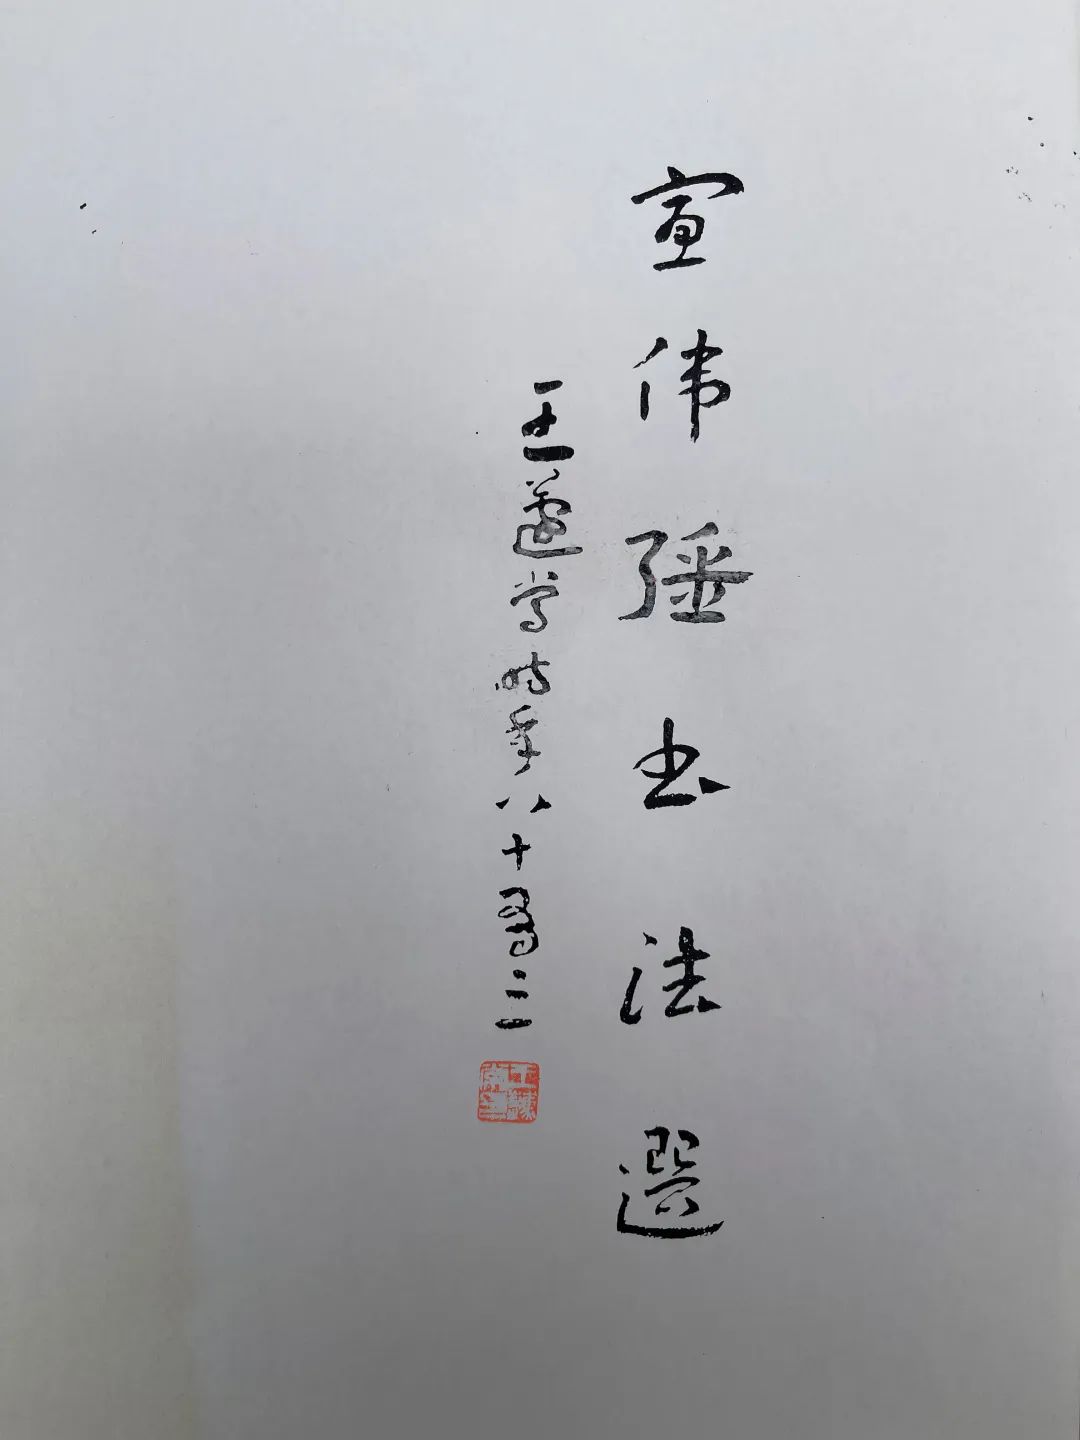 宣伟彊书法選
王蘧常时年八十有三